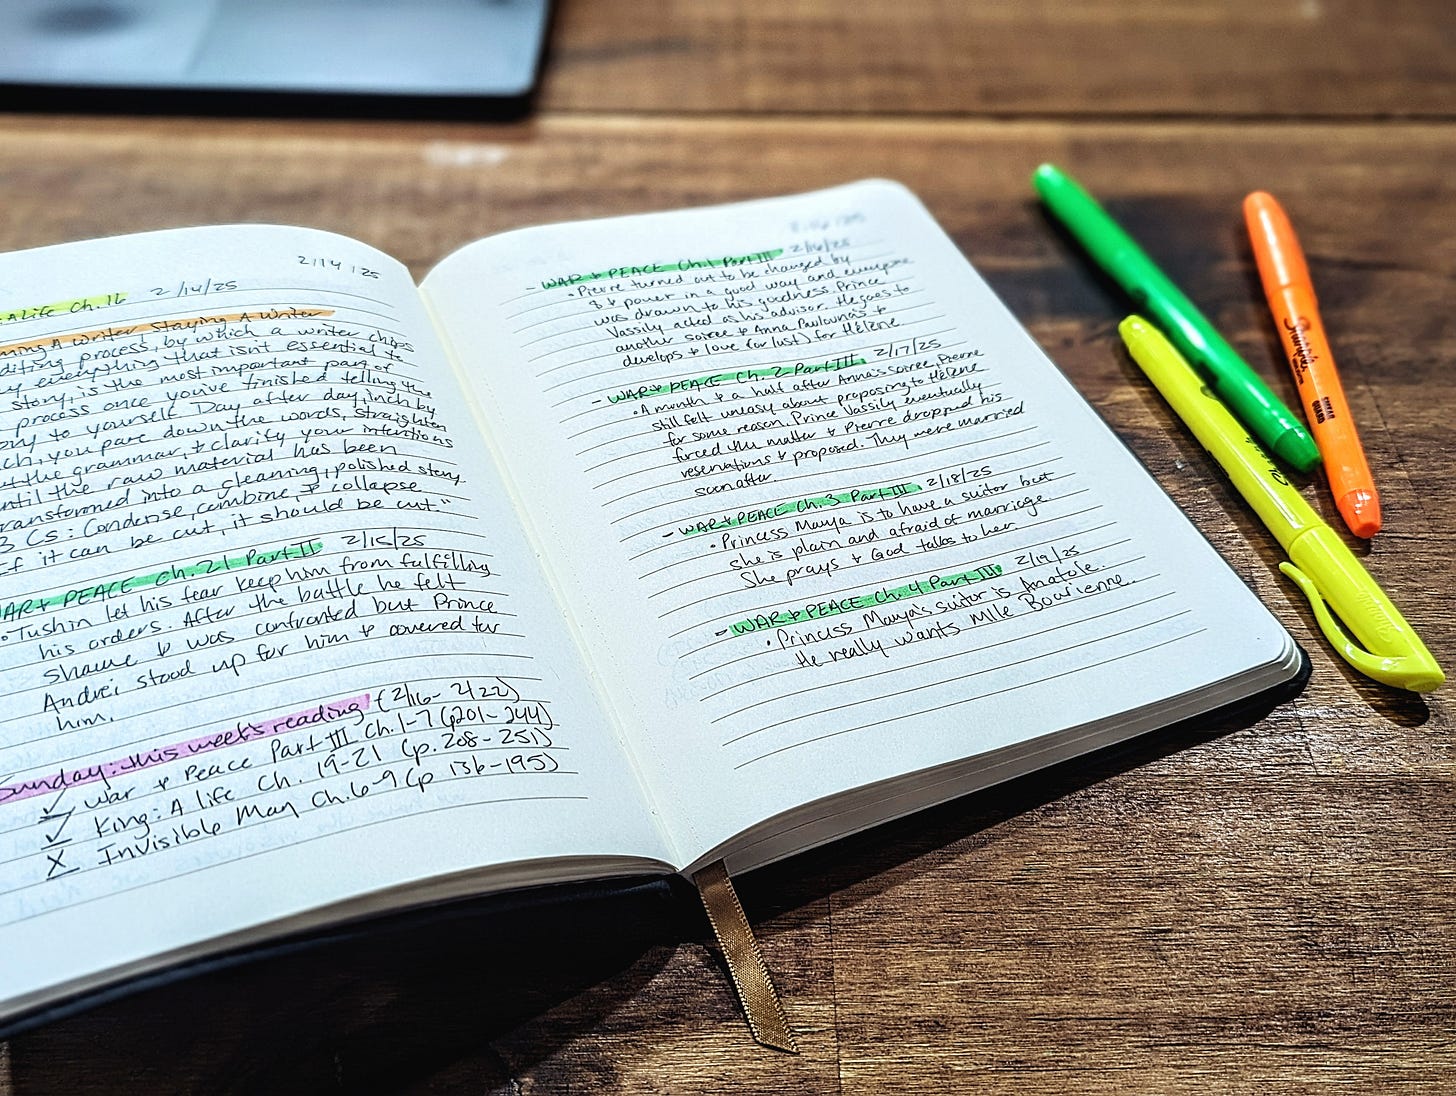 2/14/25
A Life Ch. 16 2/14/25
A Writer Staying A Writer
editing process, by which a writer chops
everything that isn't essential to
story, is the most important part of
process once you've finished telling the
to yourself. Day after day, inch by
you pare down the words, straighten
the grammar, + clarify your intentions
until the raw material has been
transformed into a cleaning, polished story.
3 Cs: Condense, combine, + collapse
If it can be cut, it should be cut."
WAR + PEACE Ch. 21 Part II 2/15/25
• Tushin let his fear keep him from fulfilling
his orders. After the battle he felt
shame + was confronted but Prince
Andrei stood up for him + covered for
him.
Sunday: this week's reading (2/16-2/22)
✓ War + Peace Part III Ch. 1-7 (p201-244)
✓ King: A life Ch. 19-21 (p. 208-251)
X Invisible Man Ch. 6-9 (p 136-195)
- WAR + PEACE Ch. 1 Part III 2/16/25
• Pierre turned out to be changed by
$ + power in a good way and everyone
was drawn to his goodness. Prince
Vassily acted as his advisor. He goes to
another soiree + Anna Pavlovna's +
develops + love (or lust) for Hélène
- WAR + PEACE Ch. 2 Part III 2/17/25
• A month + a half after Anna's soiree, Pierre
still felt uneasy about proposing to Hélène
for some reason. Prince Vassily eventually
forced the matter + Pierre dropped his
reservations + proposed. They were married
soon after.
- WAR + PEACE Ch. 3 Part III 2/18/25
• Princess Marya is to have a suitor but
she is plain and afraid of marriage.
She prays + God talks to her.
- WAR + PEACE Ch. 4 Part III 2/19/25
• Princess Marya's suitor is Anatole.
He really wants Mlle Bourienne.
Sharpie